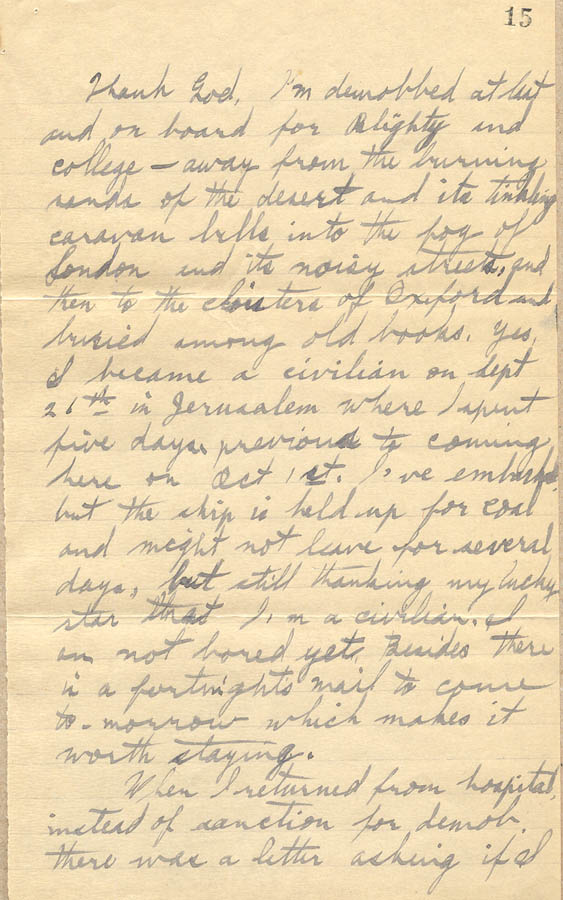 15
Thank God, I'm demobbed at last
and on board for Blighty and
college – away from the burning
sands of the desert and its tinkling
caravan bells into the fog of
London and its noisy streets, and
then to the cloisters of Oxford and
buried among old books. Yes,
I became a civilian on Sept
26th in Jerusalem where I spent
five days previous to coming
here on Oct 1st. I've
but the ship is held up for coal
and might not leave for several
days, but still thanking my lucky
star that I'm a civilian. I
am not bored yet. Besides there
is a fortnights mail to come
to-morrow which makes it
worth staying.
When I returned from hospital,
instead of sanction for demob.
there was a letter asking if I